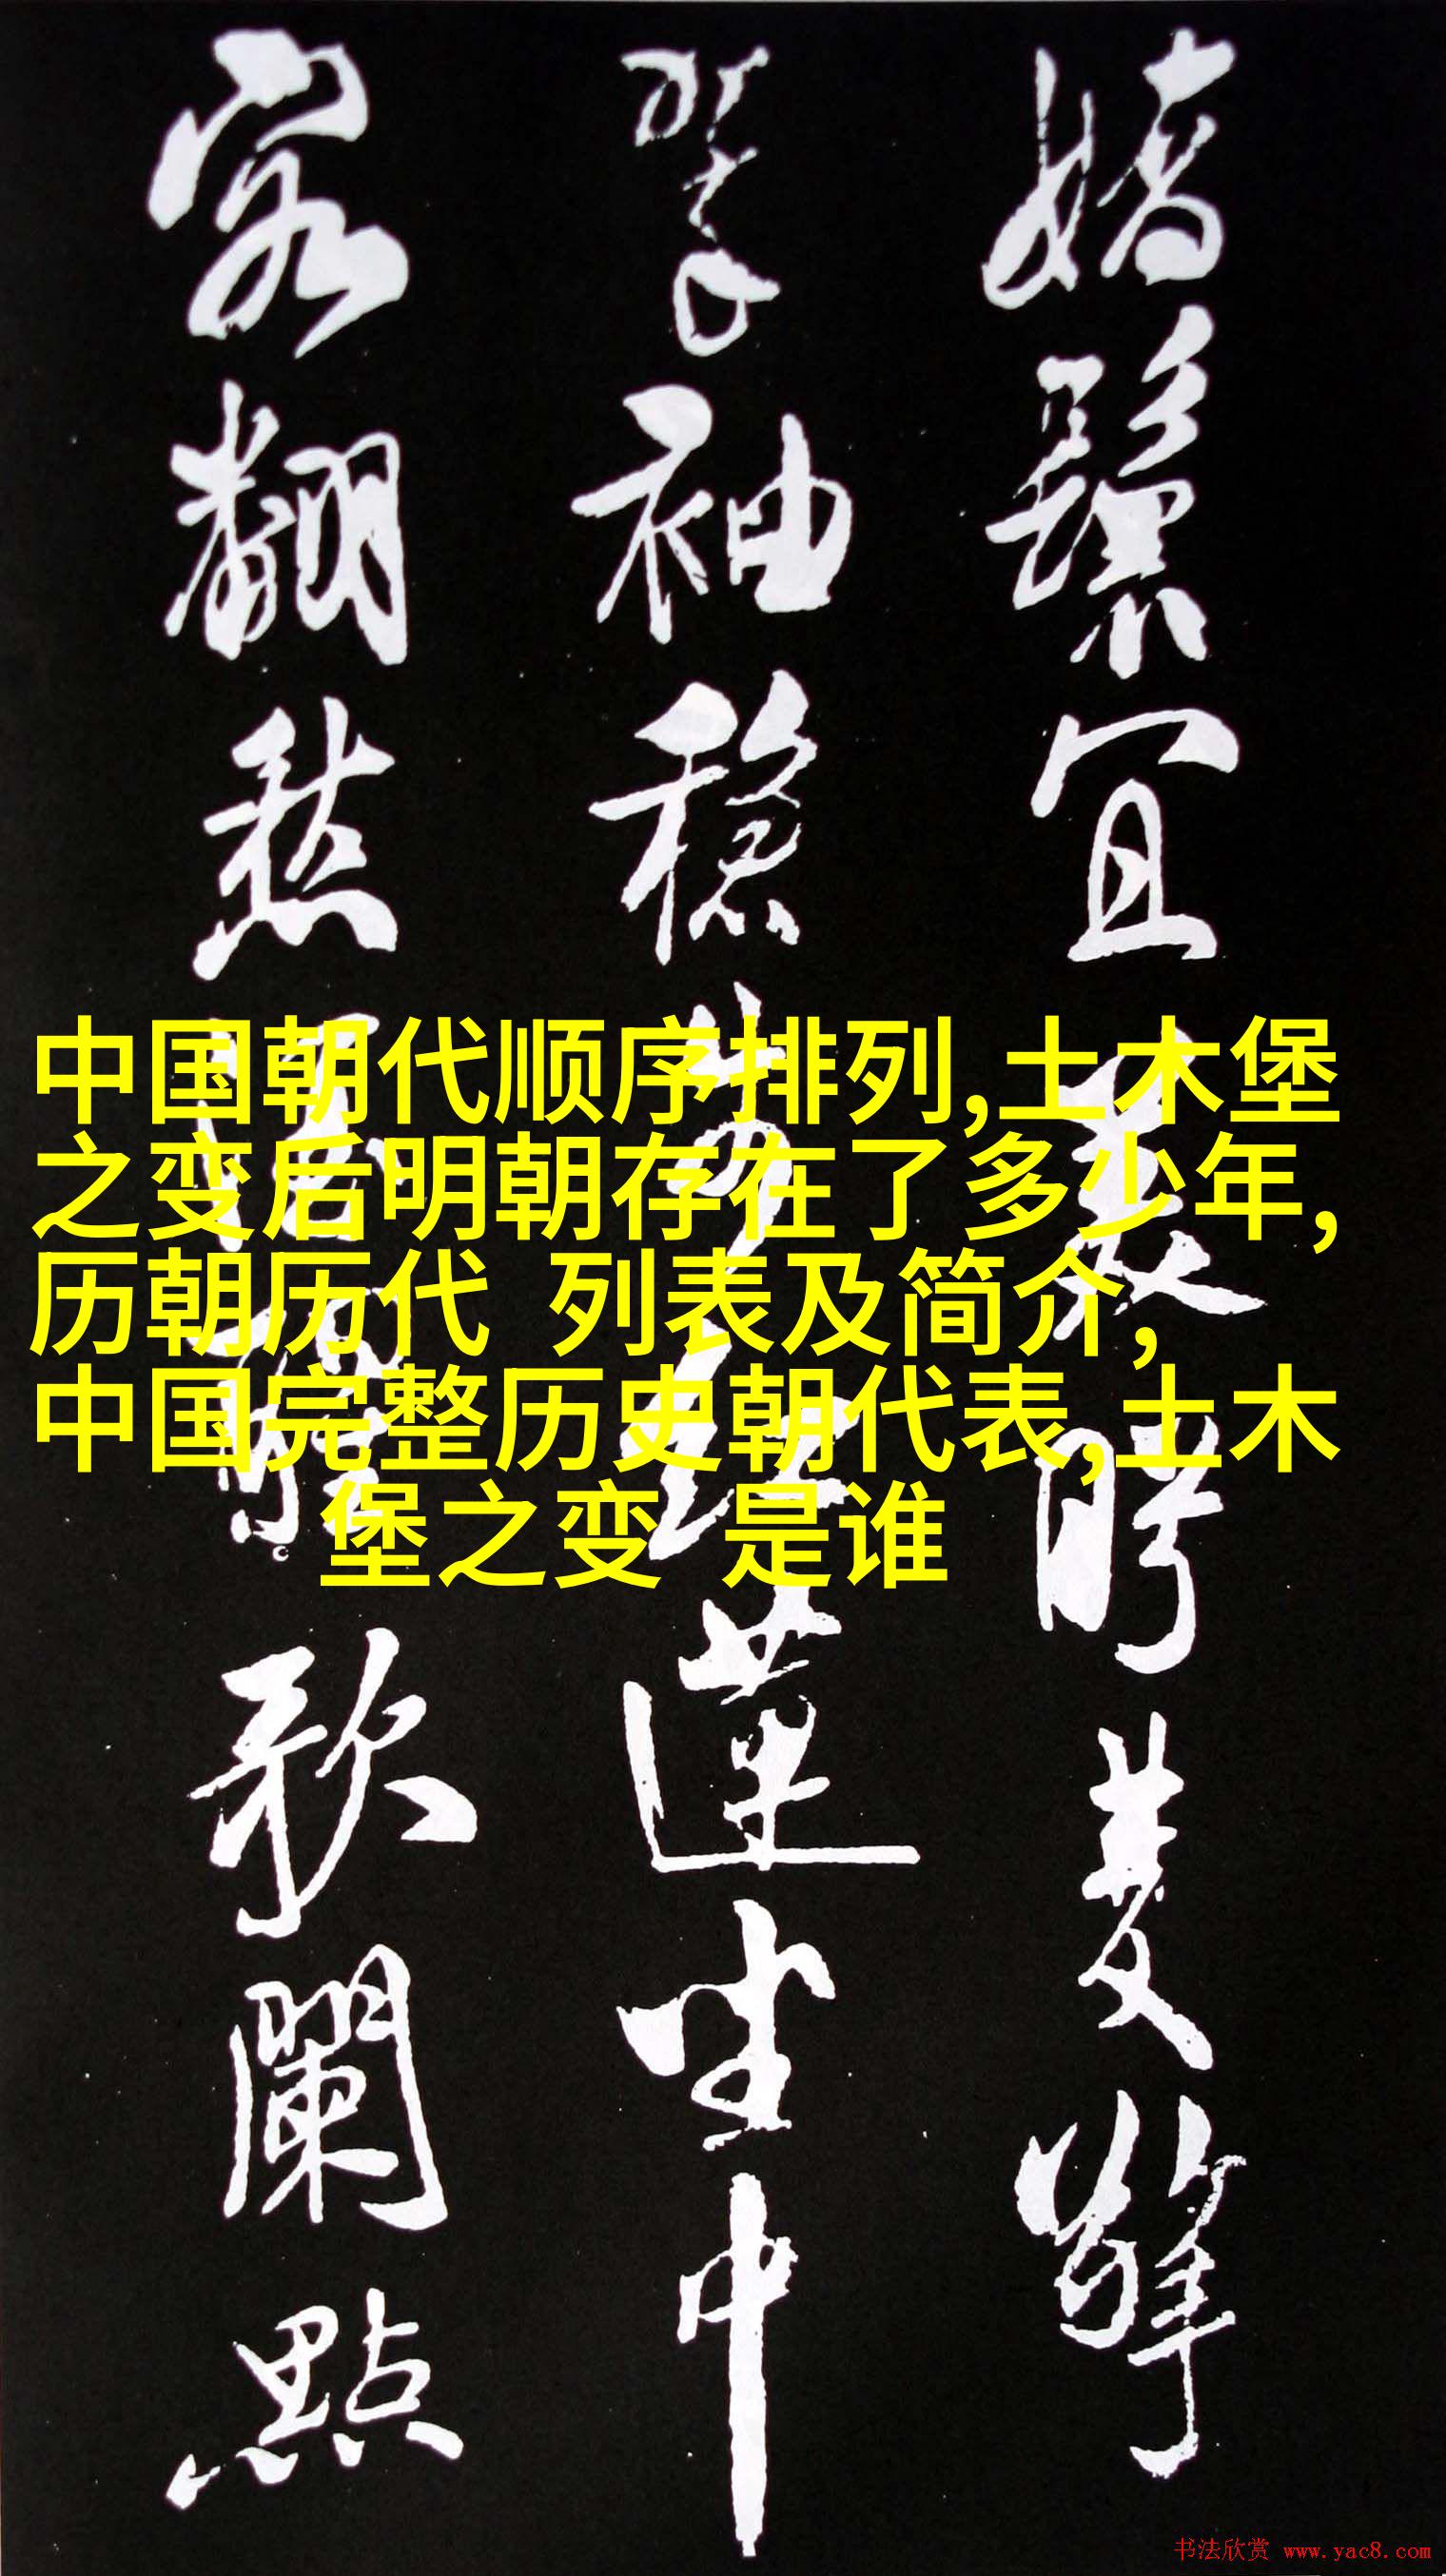 嬌鬟宜美盻雙擎
翠袖穩
蓮坐中
客翻愁
歌闌點
中国朝代顺序排列,土木堡
之变后明朝存在了多少年,
历朝历代 列表及简介,
中国完整历史朝代表,土木
堡之变 是谁
书法欣赏 www.yac8.com